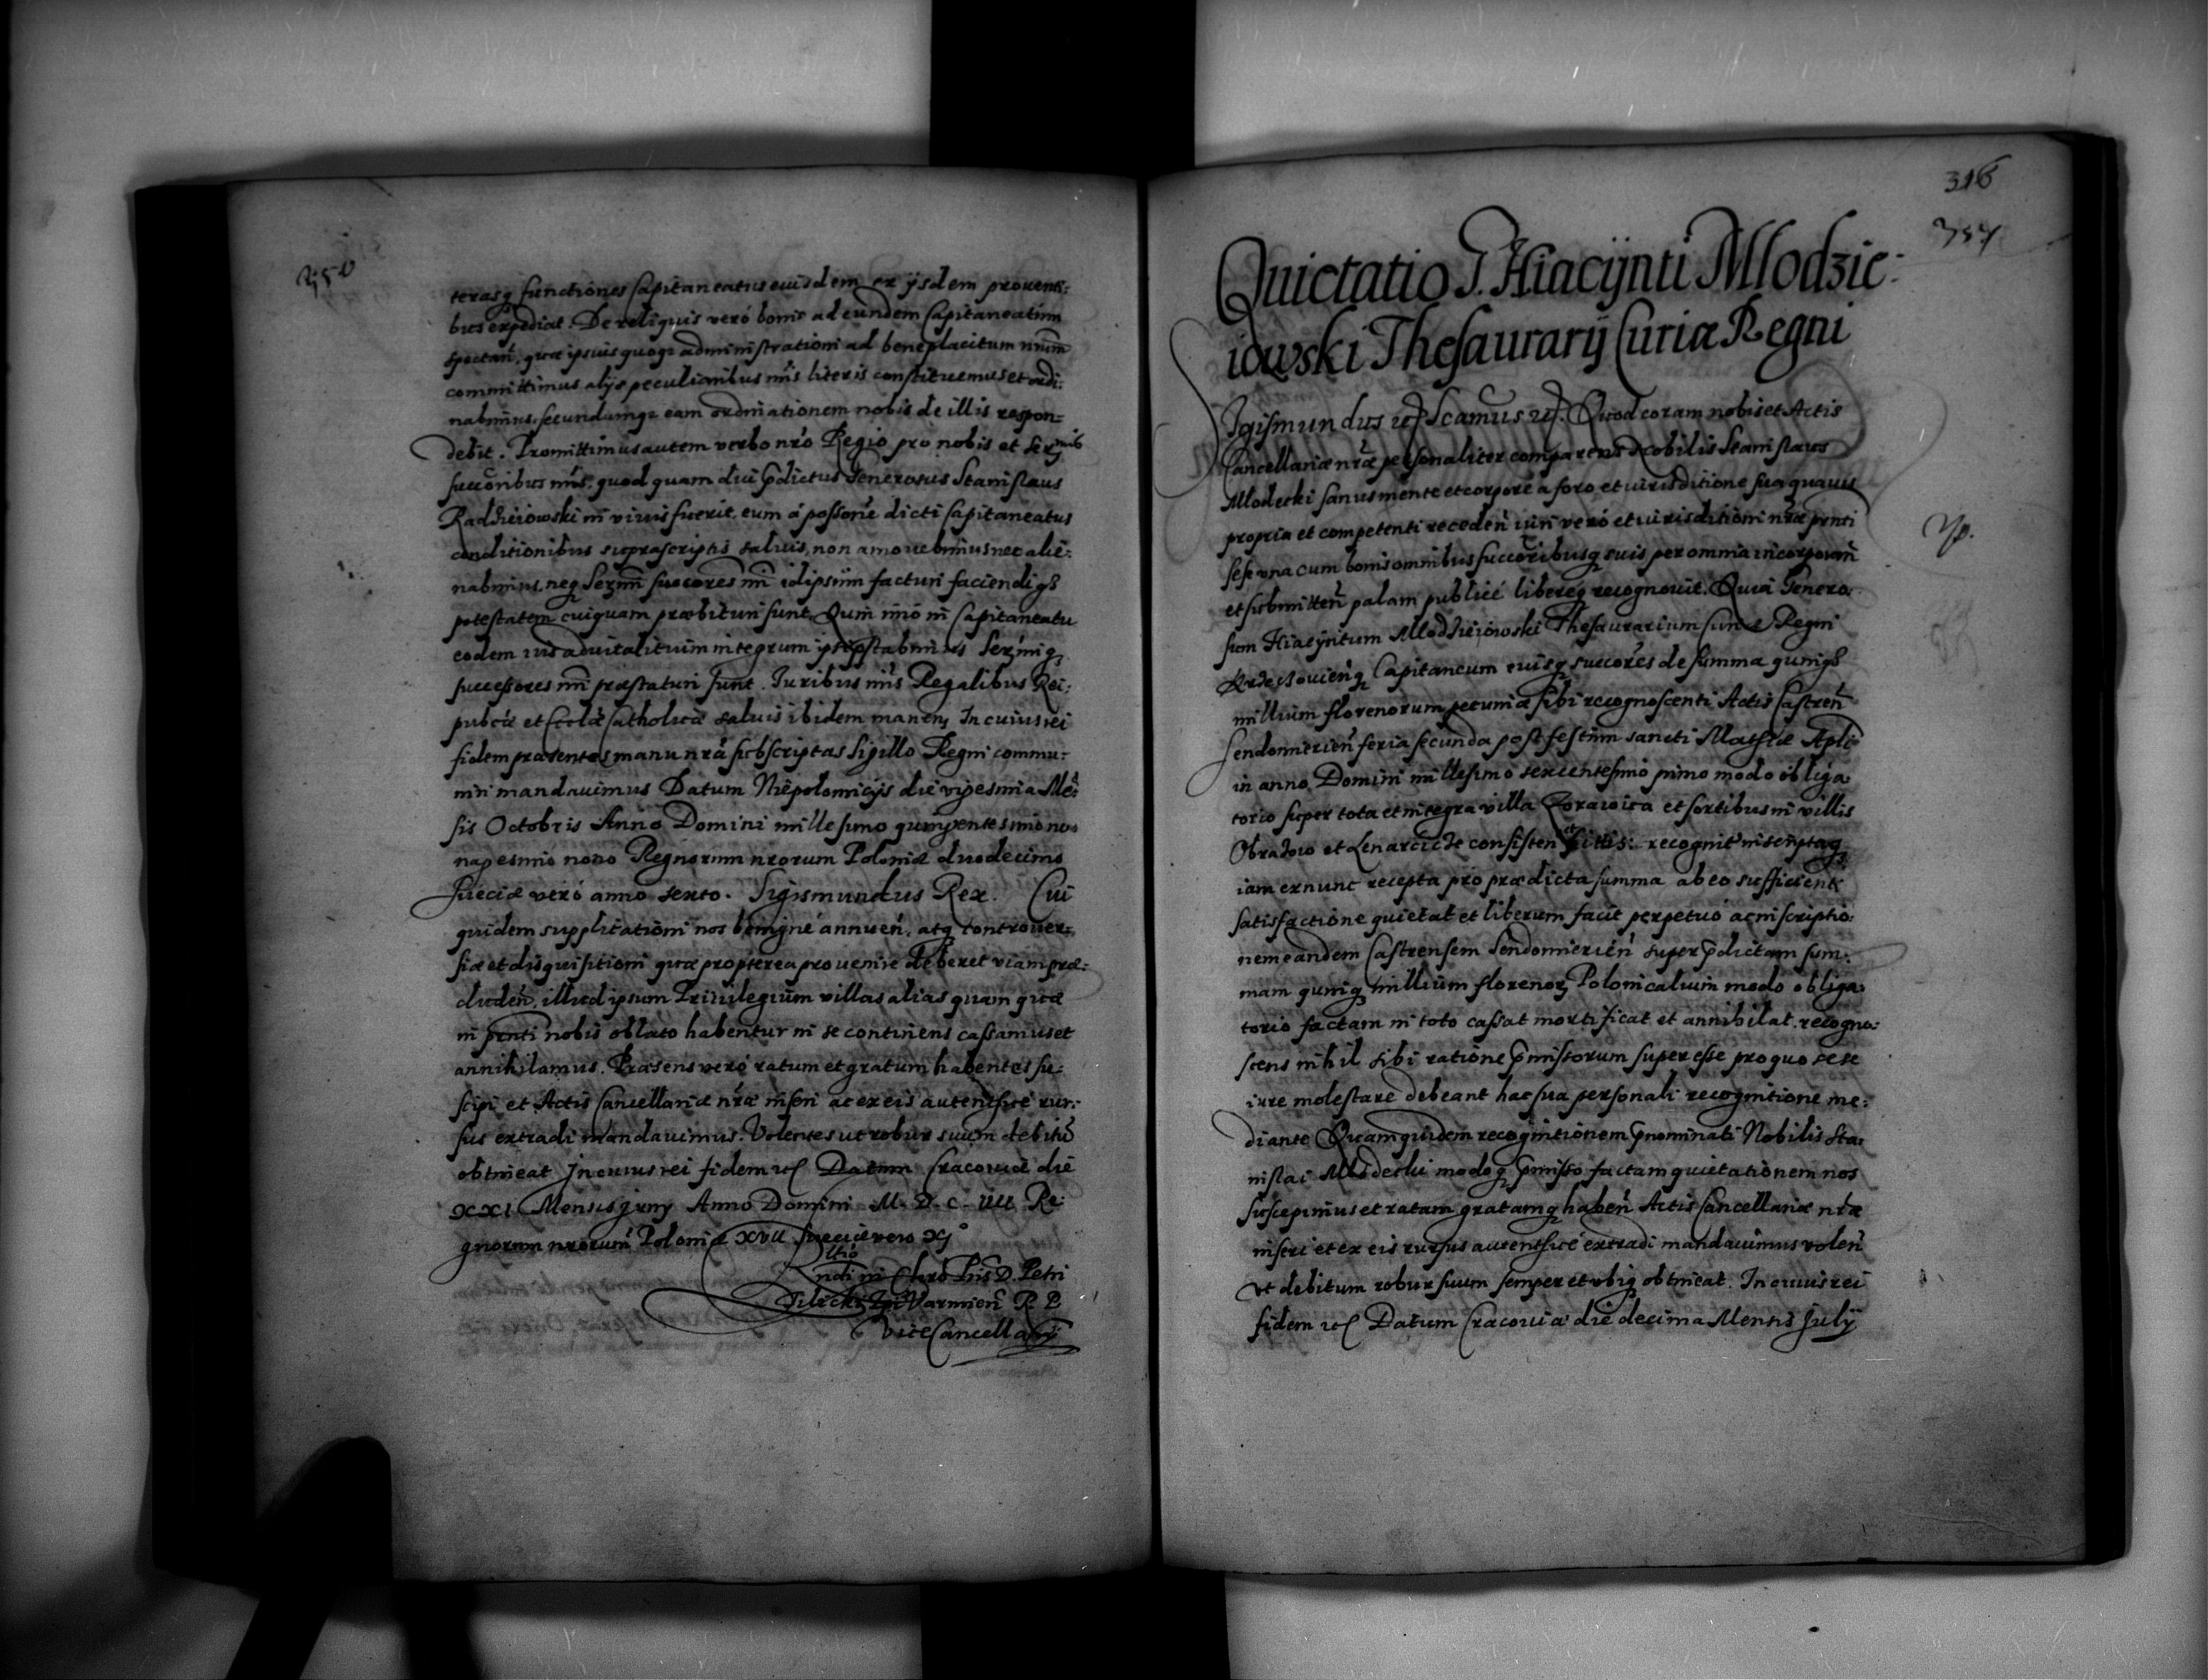 350
terasq functiones Capitaneatus eiusdem ex ijsdem prouenti:
bus expediat. De reliquis veró bonis ad eundem Capitaneatum
spectañ, quæ ipsius quoq; administrationi ad beneplacitum nrum
committimus alijs peculiaribus nris literis constituemus et ordi:
nabimus, secundumq; eam ordinationem nobis de illis respon:
debit. Promittimus autem verbo nro Regio pro nobis et Sermis
succoribus nris, quod quam diu pdictus Generosus Stanislaus
Radzieiowski in viuis fuerit, eum á possone dicti Capitaneatus
conditionibus suprascriptis saluis, non amouebimus nec alie:
nabimus, neq Sermi succores nri id ipsum facturi faciendiq
potestatem cuiquam præbituri sunt. Quin imó in Capitaneatu
eodem ius aduitalitium integrum ipsi pstabimus Sermiq
successores nri præstaturi sunt. Iuribus nris Regalibus Rei:
pubcæ et Ecclæ Catholicæ saluis ibidem maneñ. In cuius rei
fidem præsentes manu nrá subscriptas Sigillo Regni commu:
niri mandauimus Datum Niepolomicijs die vigesima Me:
sis Octobris Anno Domini millesimo quingentesimo no:
nagesimo nono Regnorum nrorum Poloniæ duodecimo
Sueciæ veró anno sexto. Sigismundus Rex. Cui
quidem supplicationi nos benigné annueñ, atq controuer:
siæ et disquisitioni quæ propterea prouenire deberet viam præ:
cludeñ, illud ipsum Priuilegium villas alias quam quæ
in pnti nobis oblato habentur in se continens cassamus et
annihilamus. Præsens veró ratum et gratum habentes su:
scipi et Actis Cancellariæ nræ inseri ac ex eis autenticé rur:
sus extradi mandauimus. Volentes ut robur suum debitu
obtineat. In cuius rei fidem etc Datum Cracouiæ die
XXI Mensis Juny Anno Domini M. D. C. IIII Re
gnorum nrorum Poloniæ XVII Sueciæ vero XI°
Rltio
Rndi in Chro Pris D. Petri
Tilicki Epi Varmieñ R. P.
ViceCancellarij
316
357
Quietatio G. Hiacijnti Mlodzie:
iowski Thesaurarij Curiæ Regni
Sigismundus etc Scamus etc. Quod coram nobis et Actis
Cancellariæ nræ personaliter comparens Nobilis Stanislaus
Mlodecki sanus mente et corpore a foro et iurisditione sua quauis
propria et competenti recedeñ iuri veró et iurisditioni nræ pnti
sese vna cum bonis omnibus succoribusq suis per omnia incorporañ
et submitteñ palam publicé libereq recognouit. Quia Genero:
sum Hiacijntum Mlodzieiowski Thesaurarium Curiæ Regni
Capitaneum eiusq succores de summa quinq
millium florenorum pecuniæ sibi recognoscenti Actis Castreñ
Sendomirieñ feria secunda post festum sancti Mathiæ Apli
in anno Domini millesimo sexcentesimo primo modo obliga
torio super tota et integra villa Zorawica et sortibus in villis
et Lenarcicze consisteñ et sitis: recognit inscriptaq
iam exnunc recepta pro prædicta summa ab eo sufficienti
satisfactione quietat et liberum facit perpetuó ac inscriptio:
nem eandem Castrensem Sendomirieñ super pdictam sum:
mam quinq millium florenor Polonicalium modo obliga:
torio factam in toto cassat mortificat et annihilat. recogno:
scens nihil sibi ratione pmissorum superesse pro quo sese
iure molestare debeant hac sua personali recognitione me:
diante Quam quidem recognitionem pnominati Nobilis Sta:
nislai Mlodecki modoq pmisso factam quietationem nos
suscepimus et ratam gratamq habeñ Actis Cancellariæ nræ
inseri et ex eis rursus autenticé extradi mandauimus voleñ
vt debitum robur suum semper et vbiq obtineat. In cuius rei
fidem etc Datum Cracouiæ die decima Mensis Julij